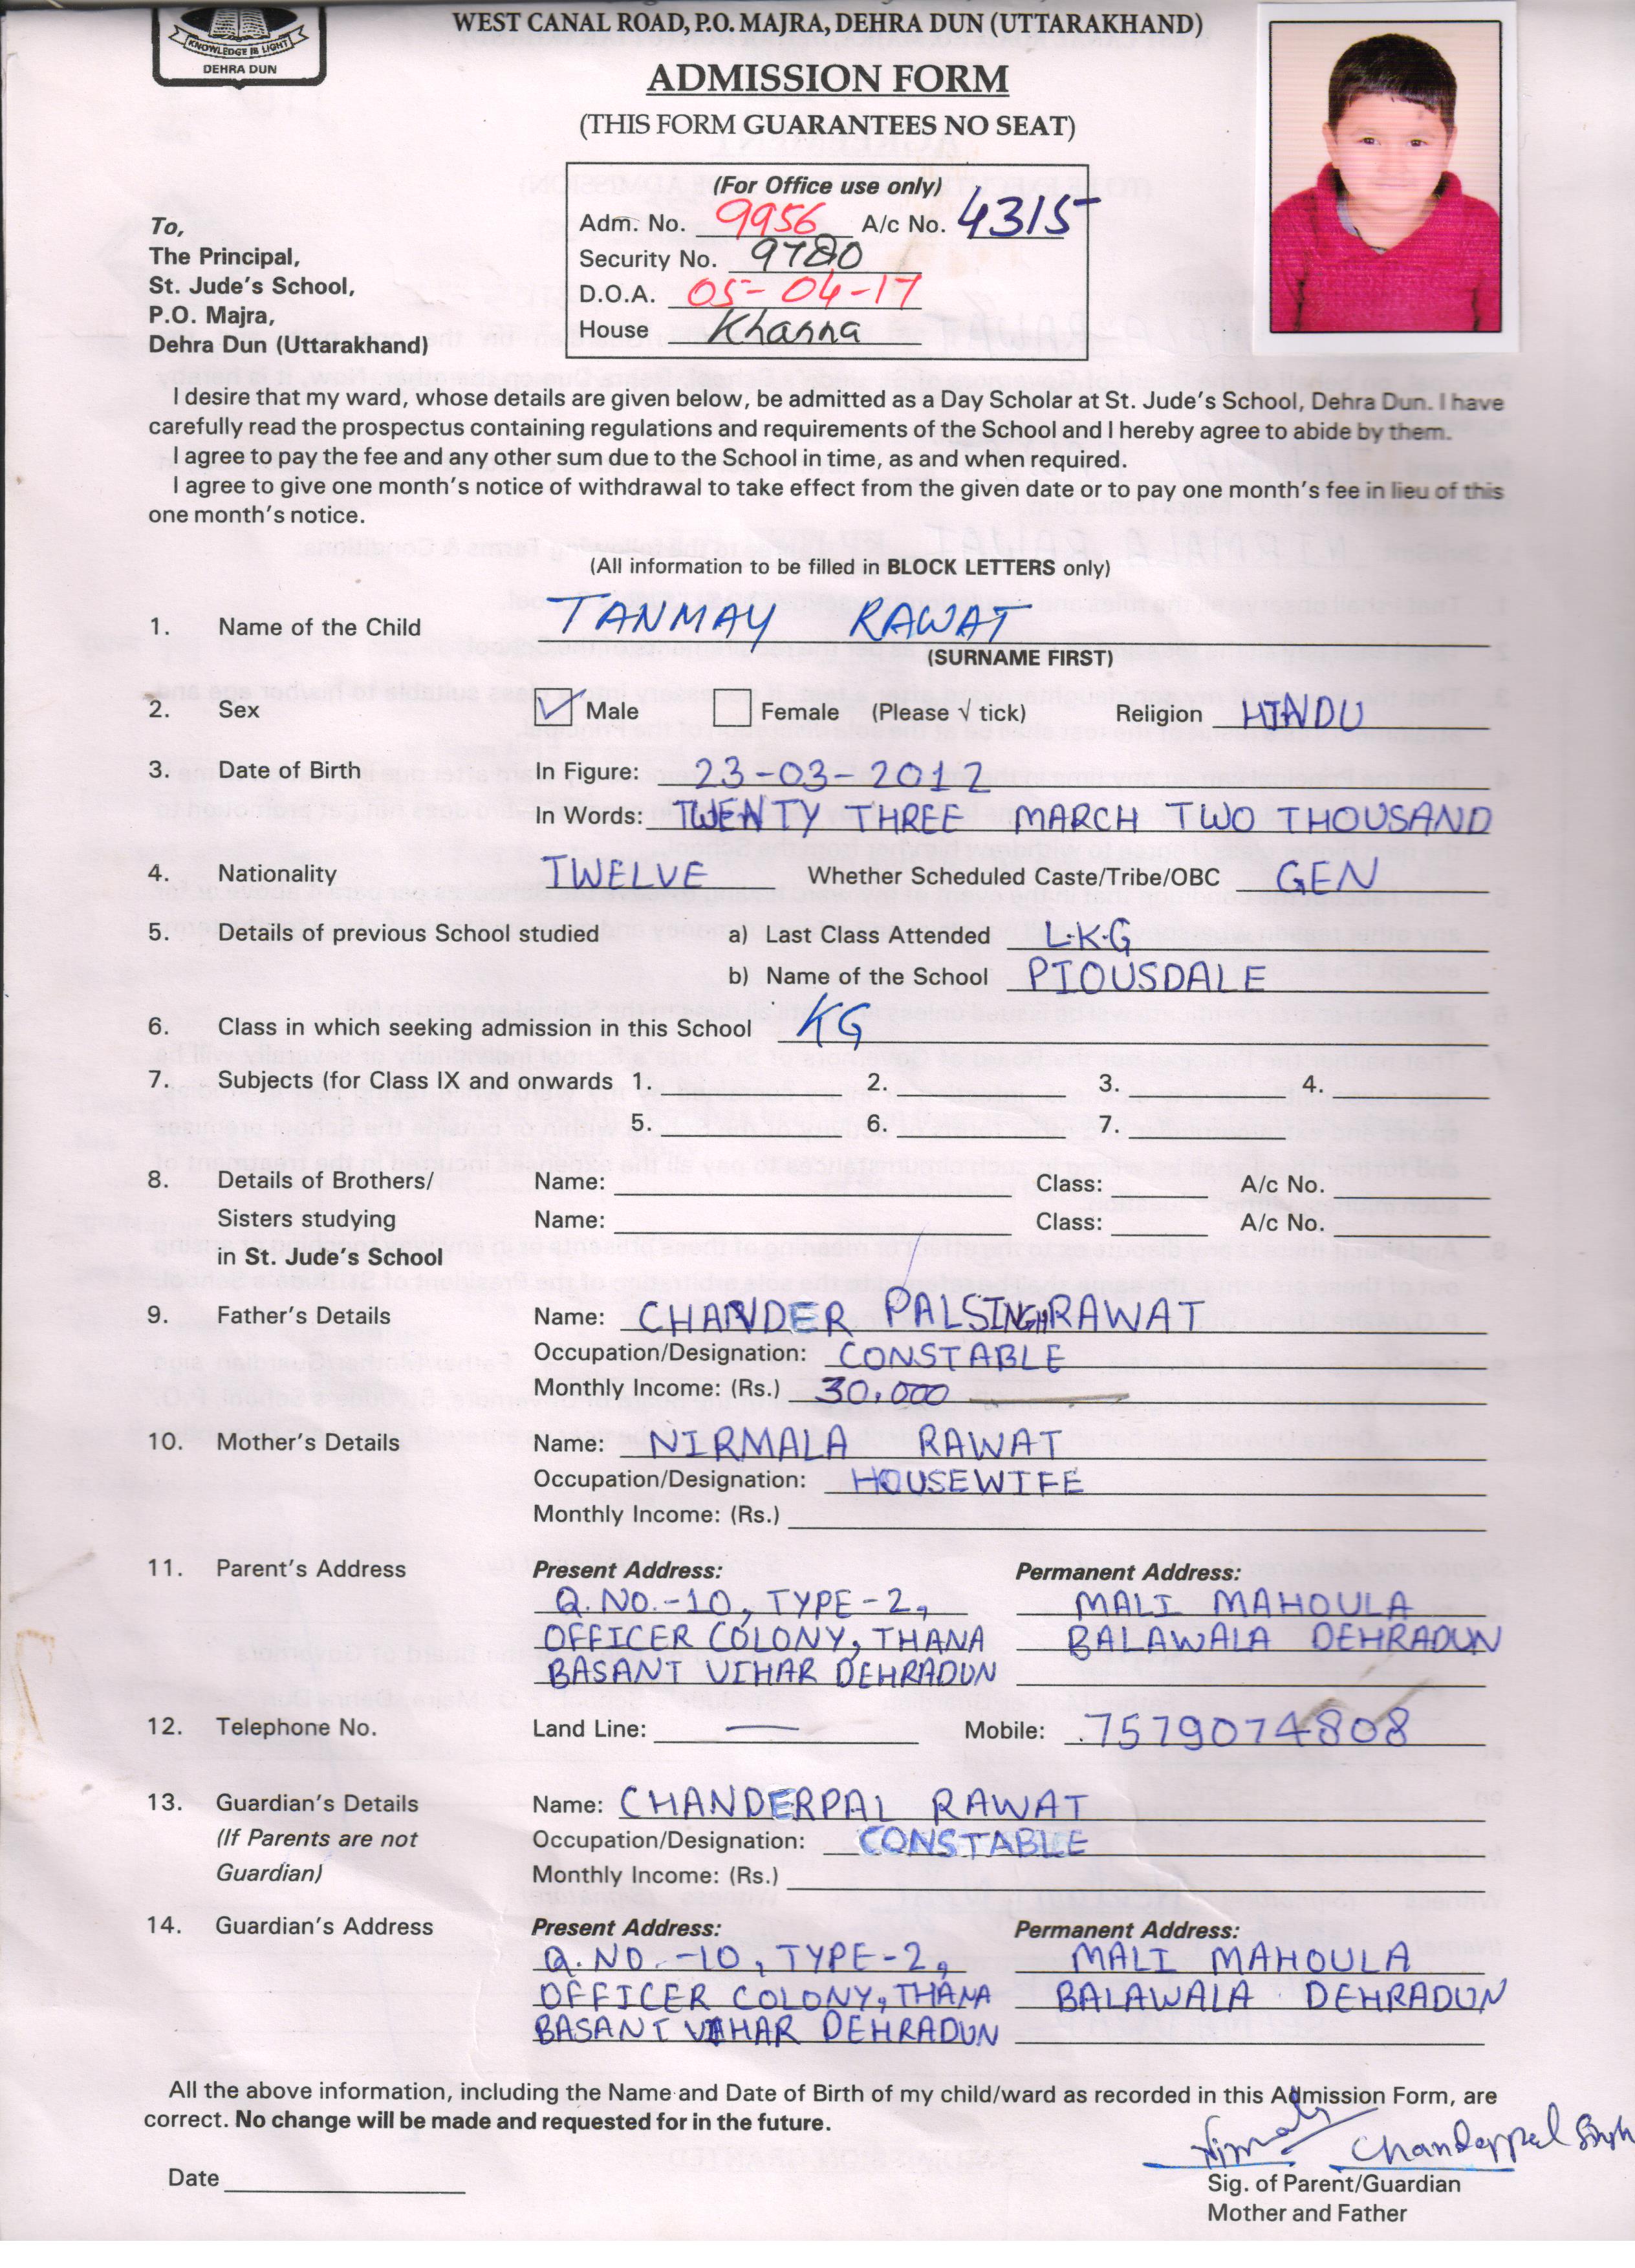 KNOWLEDGE IS LIGHT
DEHRA DUN
WEST CANAL ROAD, P.O. MAJRA, DEHRA DUN (UTTARAKHAND)
ADMISSION FORM
(THIS FORM GUARANTEES NO SEAT)
(For Office use only)
Adm. No. 9956 A/c No. 4315
Security No. 9780
D.O.A. 05-04-17
House Khanna
To,
The Principal,
St. Jude's School,
P.O. Majra,
Dehra Dun (Uttarakhand)
I desire that my ward, whose details are given below, be admitted as a Day Scholar at St. Jude's School, Dehra Dun. I have
carefully read the prospectus containing regulations and requirements of the School and I hereby agree to abide by them.
I agree to pay the fee and any other sum due to the School in time, as and when required.
I agree to give one month's notice of withdrawal to take effect from the given date or to pay one month's fee in lieu of this
one month's notice.
(All information to be filled in BLOCK LETTERS only)
1. Name of the Child TANMAY RAWAT
(SURNAME FIRST)
2. Sex Male Female (Please √ tick) Religion HINDU
3. Date of Birth In Figure: 23-03-2012
In Words: TWENTY THREE MARCH TWO THOUSAND
4. Nationality TWELVE Whether Scheduled Caste/Tribe/OBC GEN
5. Details of previous School studied a) Last Class Attended L.K.G
b) Name of the School PIOUSDALE
6. Class in which seeking admission in this School KG
7. Subjects (for Class IX and onwards 1. 2. 3. 4.
5. 6. 7.
8. Details of Brothers/ Name: Class: A/c No.
Sisters studying Name: Class: A/c No.
in St. Jude's School
9. Father's Details Name: CHANDER PALSINGHRAWAT
Occupation/Designation: CONSTABLE
Monthly Income: (Rs.) 30,000
10. Mother's Details Name: NIRMALA RAWAT
Occupation/Designation: HOUSEWIFE
Monthly Income: (Rs.)
11. Parent's Address Present Address: Permanent Address:
Q.NO.-10, TYPE-2, MALI MAHOULA
OFFICER COLONY, THANA BALAWALA DEHRADUN
BASANT VIHAR DEHRADUN
12. Telephone No. Land Line: — Mobile: 7579074808
13. Guardian's Details Name: CHANDERPAL RAWAT
(If Parents are not Occupation/Designation: CONSTABLE
Guardian) Monthly Income: (Rs.)
14. Guardian's Address Present Address: Permanent Address:
Q.NO.-10, TYPE-2, MALI MAHOULA
OFFICER COLONY, THANA BALAWALA DEHRADUN
BASANT VIHAR DEHRADUN
All the above information, including the Name and Date of Birth of my child/ward as recorded in this Admission Form, are
correct. No change will be made and requested for in the future.
Chanderpal Singh
Date Sig. of Parent/Guardian
Mother and Father